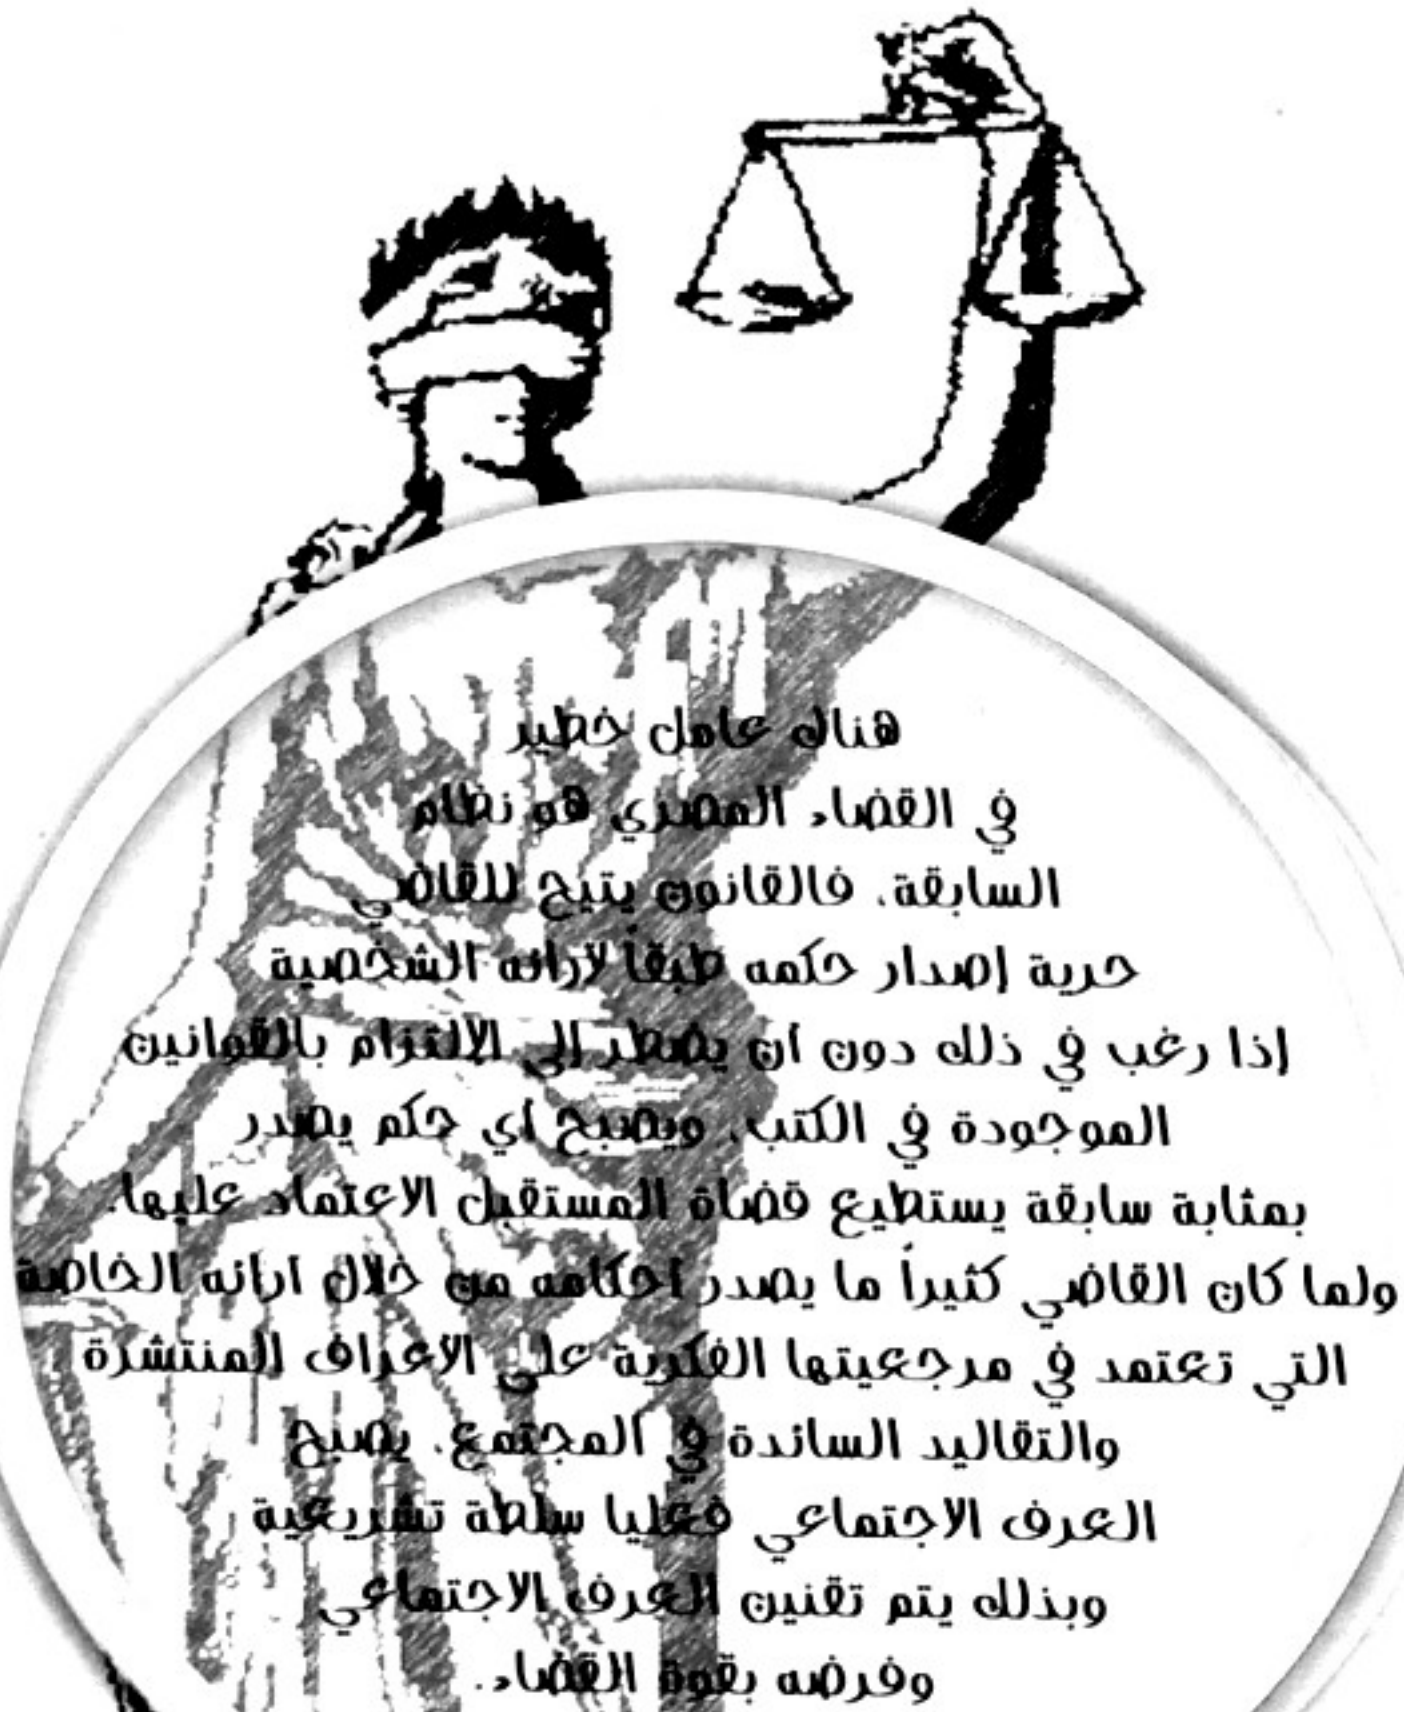 هناك عامل خطير
في القضاء المصري هو نظام
السابقة. فالقانون يتيح للقاضي
حرية إصدار حكمه طبقاً لآرائه الشخصية
إذا رغب في ذلك دون أن يضطر إلى الالتزام بالقوانين
الموجودة في الكتب. ويصبح أي حكم يصدر
بمثابة سابقة يستطيع قضاة المستقبل الاعتماد عليها.
ولما كان القاضي كثيراً ما يصدر أحكامه من خلال آرائه الخاصة
التي تعتمد في مرجعيتها الفكرية على الأعراف المنتشرة
والتقاليد السائدة في المجتمع. يصبح
العرف الاجتماعي فعليا سلطة تشريعية
وبذلك يتم تقنين العرف الاجتماعي
وفرضه بقوة القضاء.